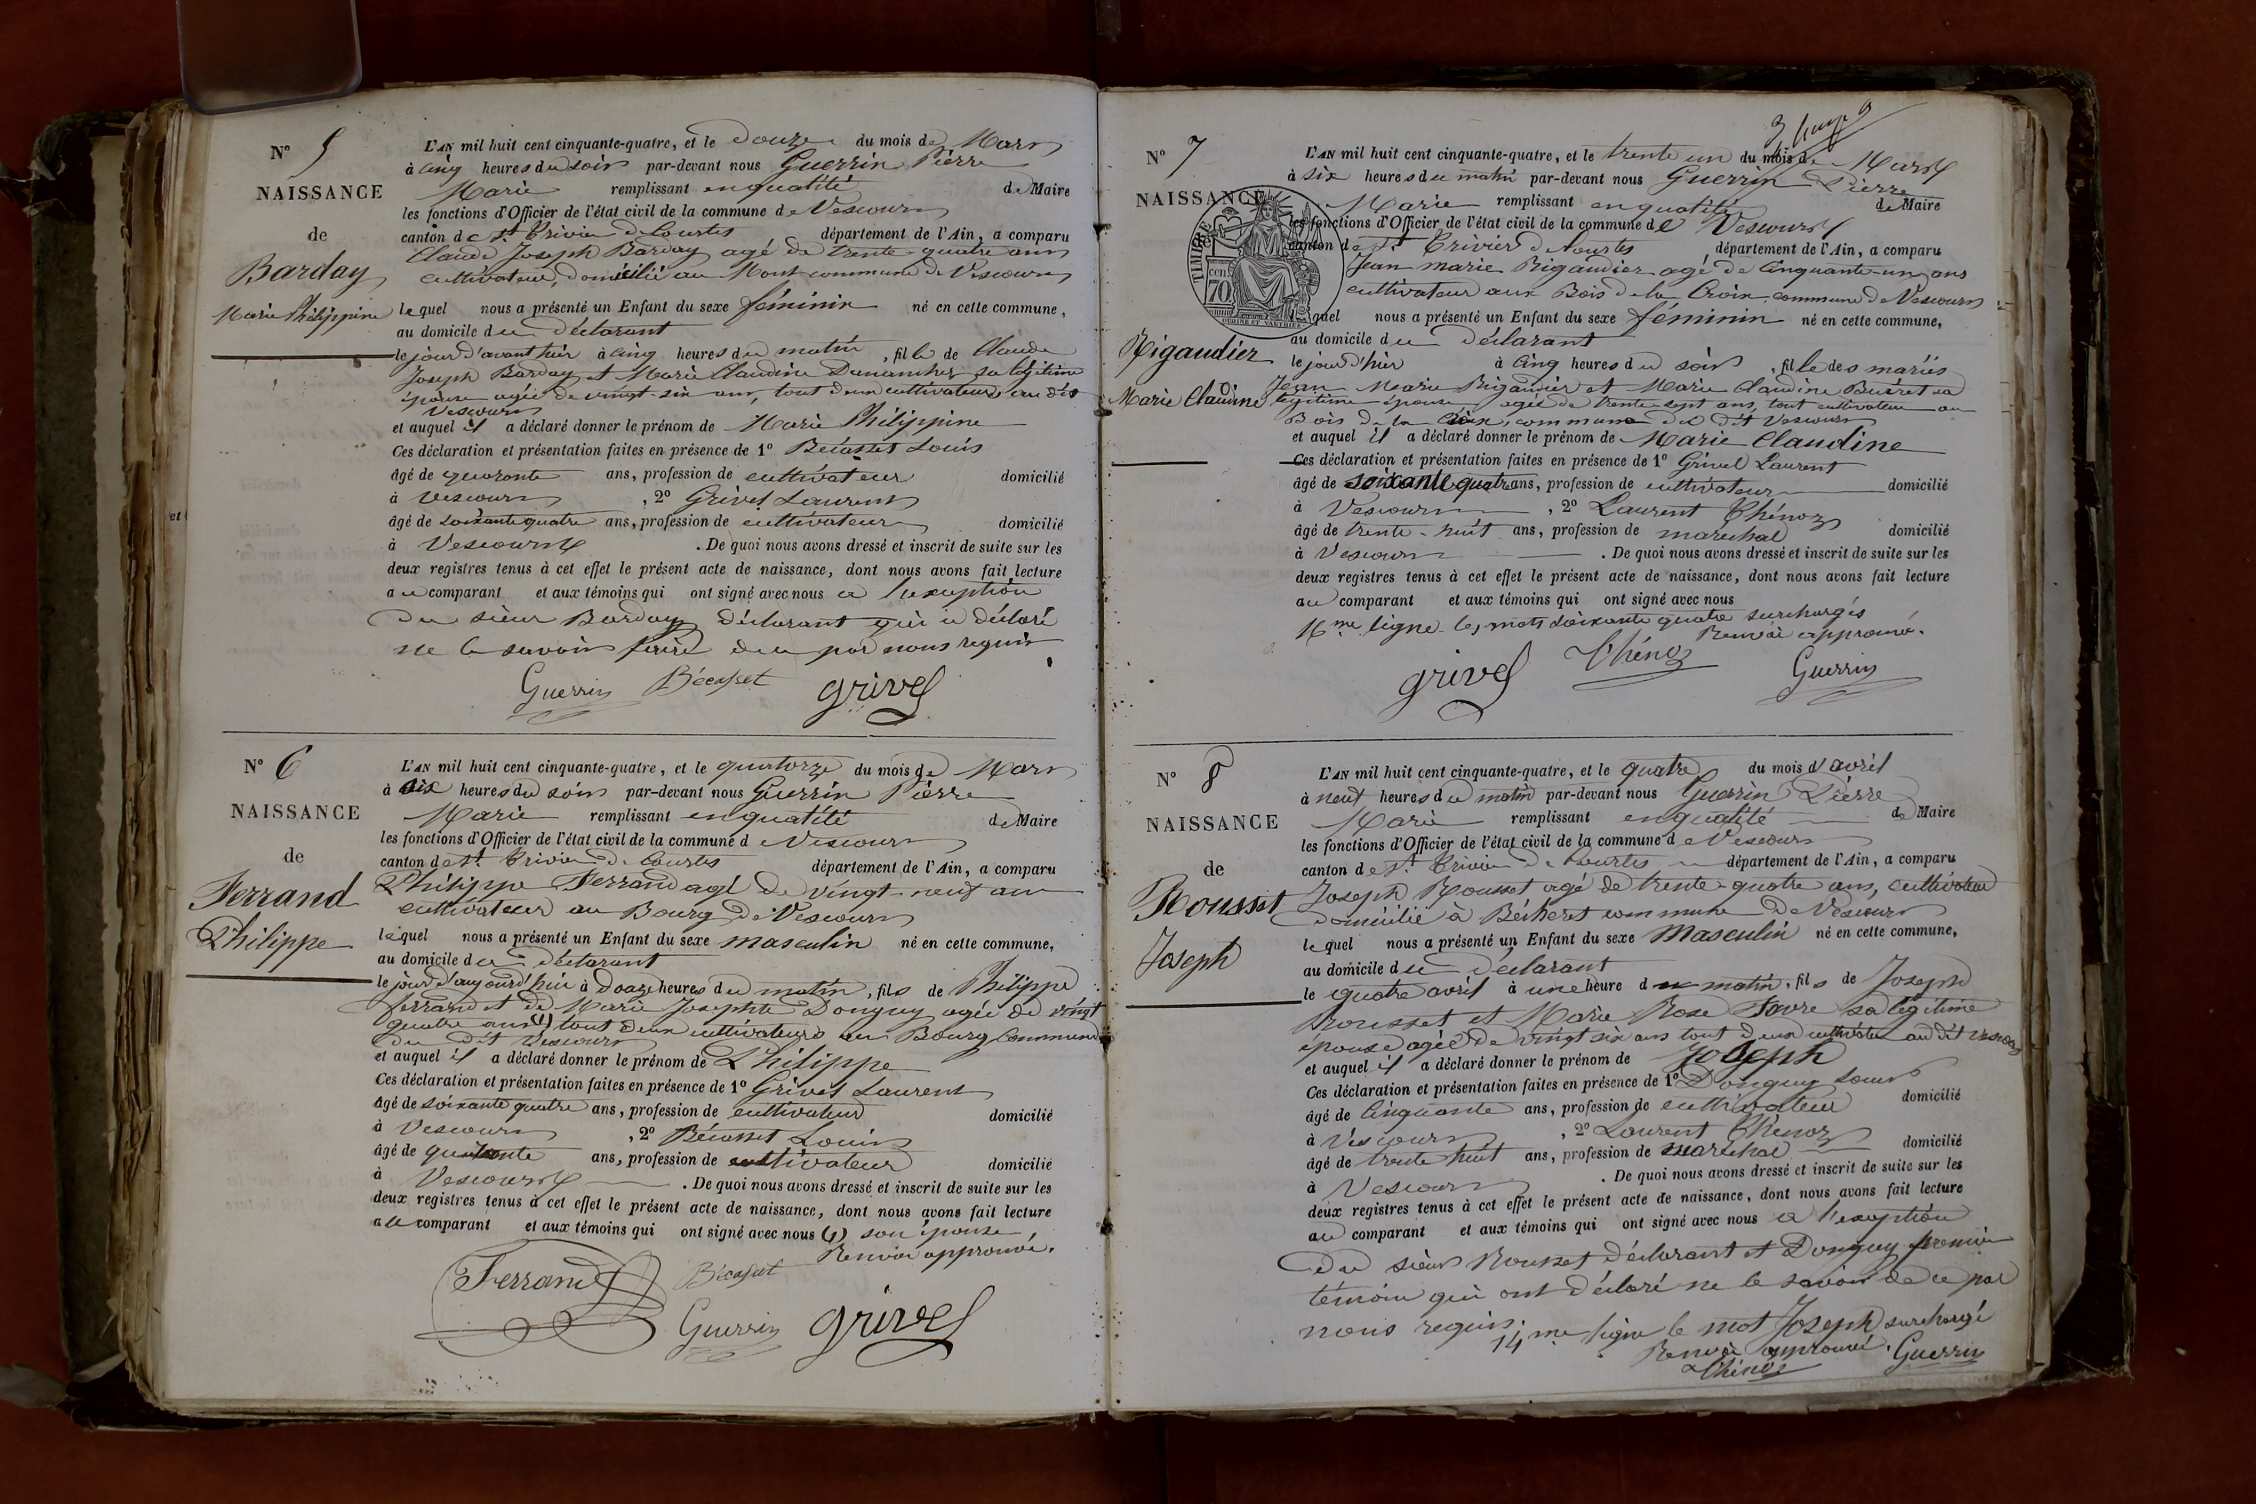 N° 5
NAISSANCE
de
Barday
Marie Philippine
L'AN mil huit cent cinquante-quatre, et le douze du mois de Mars
à cinq heures du soir par-devant nous Guerrin Pierre
Marie remplissant en qualité de Maire
les fonctions d'Officier de l'état civil de la commune de Vescours
canton de St Trivier de Courtes département de l'Ain, a comparu
Claude Joseph Barday agé de trente-quatre ans
cultivateur, domicilié au Mont commune de Vescours
lequel nous a présenté un Enfant du sexe féminin né en cette commune,
au domicile du déclarant
le jour d'avant hier à cinq heures du matin, fille de Claude
Joseph Barday et Marie Claudine sa légitime
épouse agée de vingt-six ans, tout deux cultivateurs au dit
Vescours
et auquel il a déclaré donner le prénom de Marie Philippine
Ces déclaration et présentation faites en présence de 1° Bécasset Louis
âgé de quarante ans, profession de cultivateur domicilié
à Vescours, 2° Grivel Laurent
âgé de soixante quatre ans, profession de cultivateur domicilié
à Vescours. De quoi nous avons dressé et inscrit de suite sur les
deux registres tenus à cet effet le présent acte de naissance, dont nous avons fait lecture
au comparant et aux témoins qui ont signé avec nous a l'exception
du sieur Barday déclarant qui a déclaré
ne le savoir faire de ce par nous requis
Guerrin Bécasset Grivel
N° 6
NAISSANCE
de
Ferrand
Philippe
L'AN mil huit cent cinquante-quatre, et le quatorze du mois de Mars
à six heures du soir par-devant nous Guerrin Pierre
Marie remplissant en qualité de Maire
les fonctions d'Officier de l'état civil de la commune de Vescours
canton de St Trivier de Courtes département de l'Ain, a comparu
Philippe Ferrand agé de vingt-neuf ans
cultivateur au Bourg de Vescours
lequel nous a présenté un Enfant du sexe masculin né en cette commune,
au domicile du déclarant
le jour d'aujourd'hui à douze heures du matin, fils de Philippe
ferrand et de Marie Josephte Donguy agée de vingt
quatre ans (1) tout deux cultivateurs au Bourg commune
du dit Vescours
et auquel il a déclaré donner le prénom de Philippe
Ces déclaration et présentation faites en présence de 1° Grivel Laurent
âgé de soixante quatre ans, profession de cultivateur domicilié
à Vescours, 2° Bécasset Louis
âgé de quarante ans, profession de cultivateur domicilié
à Vescours. De quoi nous avons dressé et inscrit de suite sur les
deux registres tenus à cet effet le présent acte de naissance, dont nous avons fait lecture
au comparant et aux témoins qui ont signé avec nous (1) son épouse
Renvoi approuvé.
Ferrand Bécasset
Guerrin Grivel
N° 7
NAISSANCE
Rigaudier
Marie Claudine
L'AN mil huit cent cinquante-quatre, et le trente un du mois de Mars
à six heures du matin par-devant nous Guerrin Pierre
Marie remplissant en qualité de Maire
les fonctions d'Officier de l'état civil de la commune de Vescours
canton de St Trivier de Courtes département de l'Ain, a comparu
Jean marie Rigaudier agé de Cinquante-un ans
cultivateur aux Bois de la Croix commune de Vescours
lequel nous a présenté un Enfant du sexe féminin né en cette commune,
au domicile du déclarant
le jour d'hier à cinq heures du soir, fille des mariés
Jean Marie Rigaudier et Marie Claudine sa
légitime épouse agée de trente-sept ans, tout cultivateur au
Bois de la Croix, commune du dit Vescours
et auquel il a déclaré donner le prénom de Marie Claudine
Ces déclaration et présentation faites en présence de 1° Grivel Laurent
âgé de soixante quatre ans, profession de cultivateur domicilié
à Vescours, 2° Laurent Thénoz
âgé de trente-huit ans, profession de maréchal domicilié
à Vescours. De quoi nous avons dressé et inscrit de suite sur les
deux registres tenus à cet effet le présent acte de naissance, dont nous avons fait lecture
au comparant et aux témoins qui ont signé avec nous
16me ligne les mots soixante quatre surchargés
Renvoi approuvé.
Grivel Thénoz Guerrin
TIMBRE
70 cen.
N° 8
NAISSANCE
de
Rousset
Joseph
L'AN mil huit cent cinquante-quatre, et le quatre du mois d'avril
à neuf heures du matin par-devant nous Guerrin Pierre
Marie remplissant en qualité de Maire
les fonctions d'Officier de l'état civil de la commune de Vescours
canton de St Trivier de Courtes département de l'Ain, a comparu
Joseph Rousset agé de trente-quatre ans, cultivateur
domicilié à Bécheret commune de Vescours
lequel nous a présenté un Enfant du sexe Masculin né en cette commune,
au domicile du déclarant
le quatre avril à une heure du matin, fils de Joseph
Rousset et Marie Rose Favre sa légitime
épouse agée de vingt six ans tout deux cultivateur au dit Vescours
et auquel il a déclaré donner le prénom de Joseph
Ces déclaration et présentation faites en présence de 1° Donguy Louis
âgé de Cinquante ans, profession de cultivateur domicilié
à Vescours, 2° Laurent Thénoz
âgé de trente huit ans, profession de maréchal domicilié
à Vescours. De quoi nous avons dressé et inscrit de suite sur les
deux registres tenus à cet effet le présent acte de naissance, dont nous avons fait lecture
au comparant et aux témoins qui ont signé avec nous a l'exception
du sieur Rousset déclarant et Donguy premier
témoin qui ont déclaré ne le savoir de ce par
nous requis. 14me ligne le mot Joseph surchargé
Renvoi approuvé. Guerrin
Thénoz